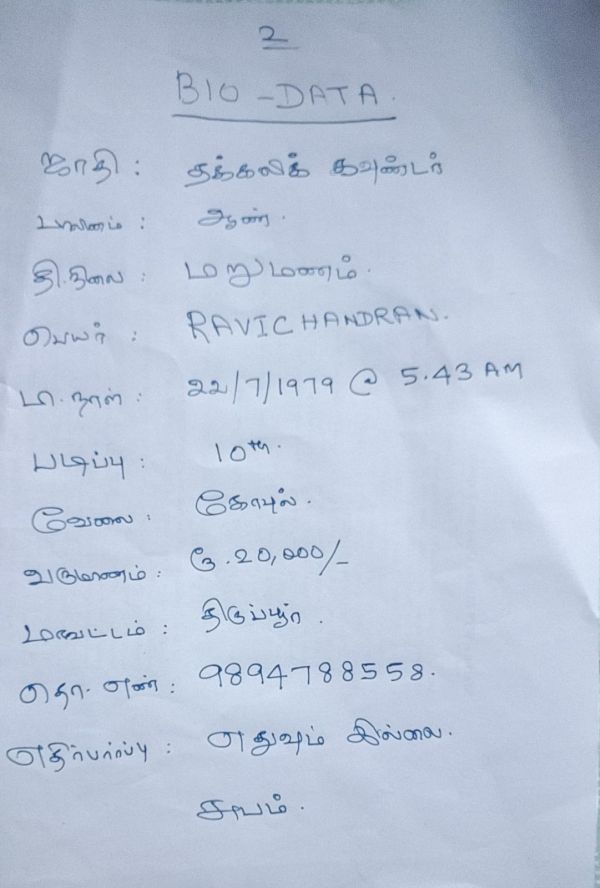 2
BIO-DATA.
ஜாதி : தக்கலிக் கவுண்டர்
பாலினம் : ஆண்.
தி.நிலை : மறுமணம்.
பெயர் : RAVICHANDRAN.
பி.நாள் : 22/7/1979 @ 5.43 AM
படிப்பு : 10th.
வேலை : கோயில்.
வருமானம் : ரூ.20,000/-
மாவட்டம் : திருப்பூர்.
தொ.எண் : 9894788558.
எதிர்பார்ப்பு : எதுவும் இல்லை.
சுபம்.